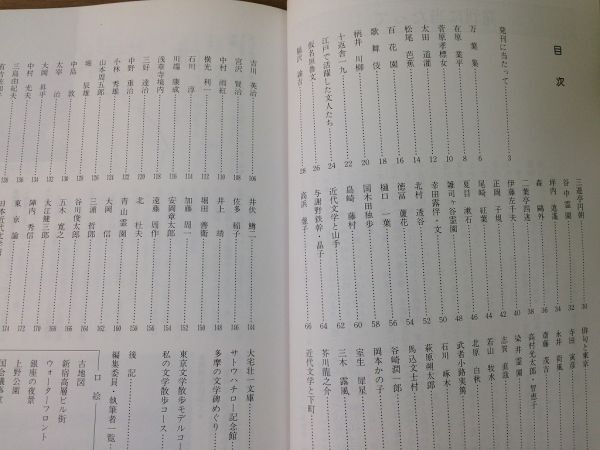 目次
発刊に当たって………3
万葉集………6
在原業平………8
菅原孝標女………10
太田道灌………12
松尾芭蕉………14
百花園………16
歌舞伎………18
柄井川柳………20
十返舎一九………22
江戸で活躍した文人たち………24
仮名垣魯文………26
福沢諭吉………28
三遊亭円朝………30
谷中霊園………32
坪内逍遙………34
森鷗外………36
二葉亭四迷………38
伊藤左千夫………40
正岡子規………42
尾崎紅葉………44
夏目漱石………46
雑司ヶ谷霊園………48
幸田露伴・文………50
北村透谷………52
徳富蘆花………54
樋口一葉………56
国木田独歩………58
島崎藤村………60
近代文学と山手………62
与謝野鉄幹・晶子………64
高浜虚子………66
俳句と東京
寺田寅彦
永井荷風
斎藤茂吉
高村光太郎・智恵子
染井霊園
志賀直哉
若山牧水
北原白秋
武者小路実篤
石川啄木
萩原朔太郎
馬込文士村
谷崎潤一郎
岡本かの子
室生犀星
三木露風
芥川龍之介
近代文学と下町
吉川英治………106
宮沢賢治………108
中村雨紅………110
横光利一………112
石川淳………114
川端康成………116
浅草寺境内………118
三好達治………120
中野重治………122
小林秀雄………124
山本周五郎………126
堀辰雄………128
中島敦………130
太宰治………132
大岡昇平………134
中村光夫………136
三島由紀夫………138
井伏鱒二………144
佐多稲子………146
井上靖………148
堀田善衛………150
加藤周一………152
安岡章太郎………154
遠藤周作………156
北杜夫………158
青山霊園………160
大岡信………162
三浦哲郎………164
谷川俊太郎………166
五木寛之………168
大江健三郎………170
陣内秀信………172
東京論………174
日本近代文学館
大宅壮一文庫
サトウハチロー記念館
多摩の文学碑めぐり
東京文学散歩モデルコース
私の文学散歩コース
後記
編集委員・執筆者一覧
口絵
古地図
新宿高層ビル街
ウォーターフロント
銀座の夜景
上野公園
国会議事堂